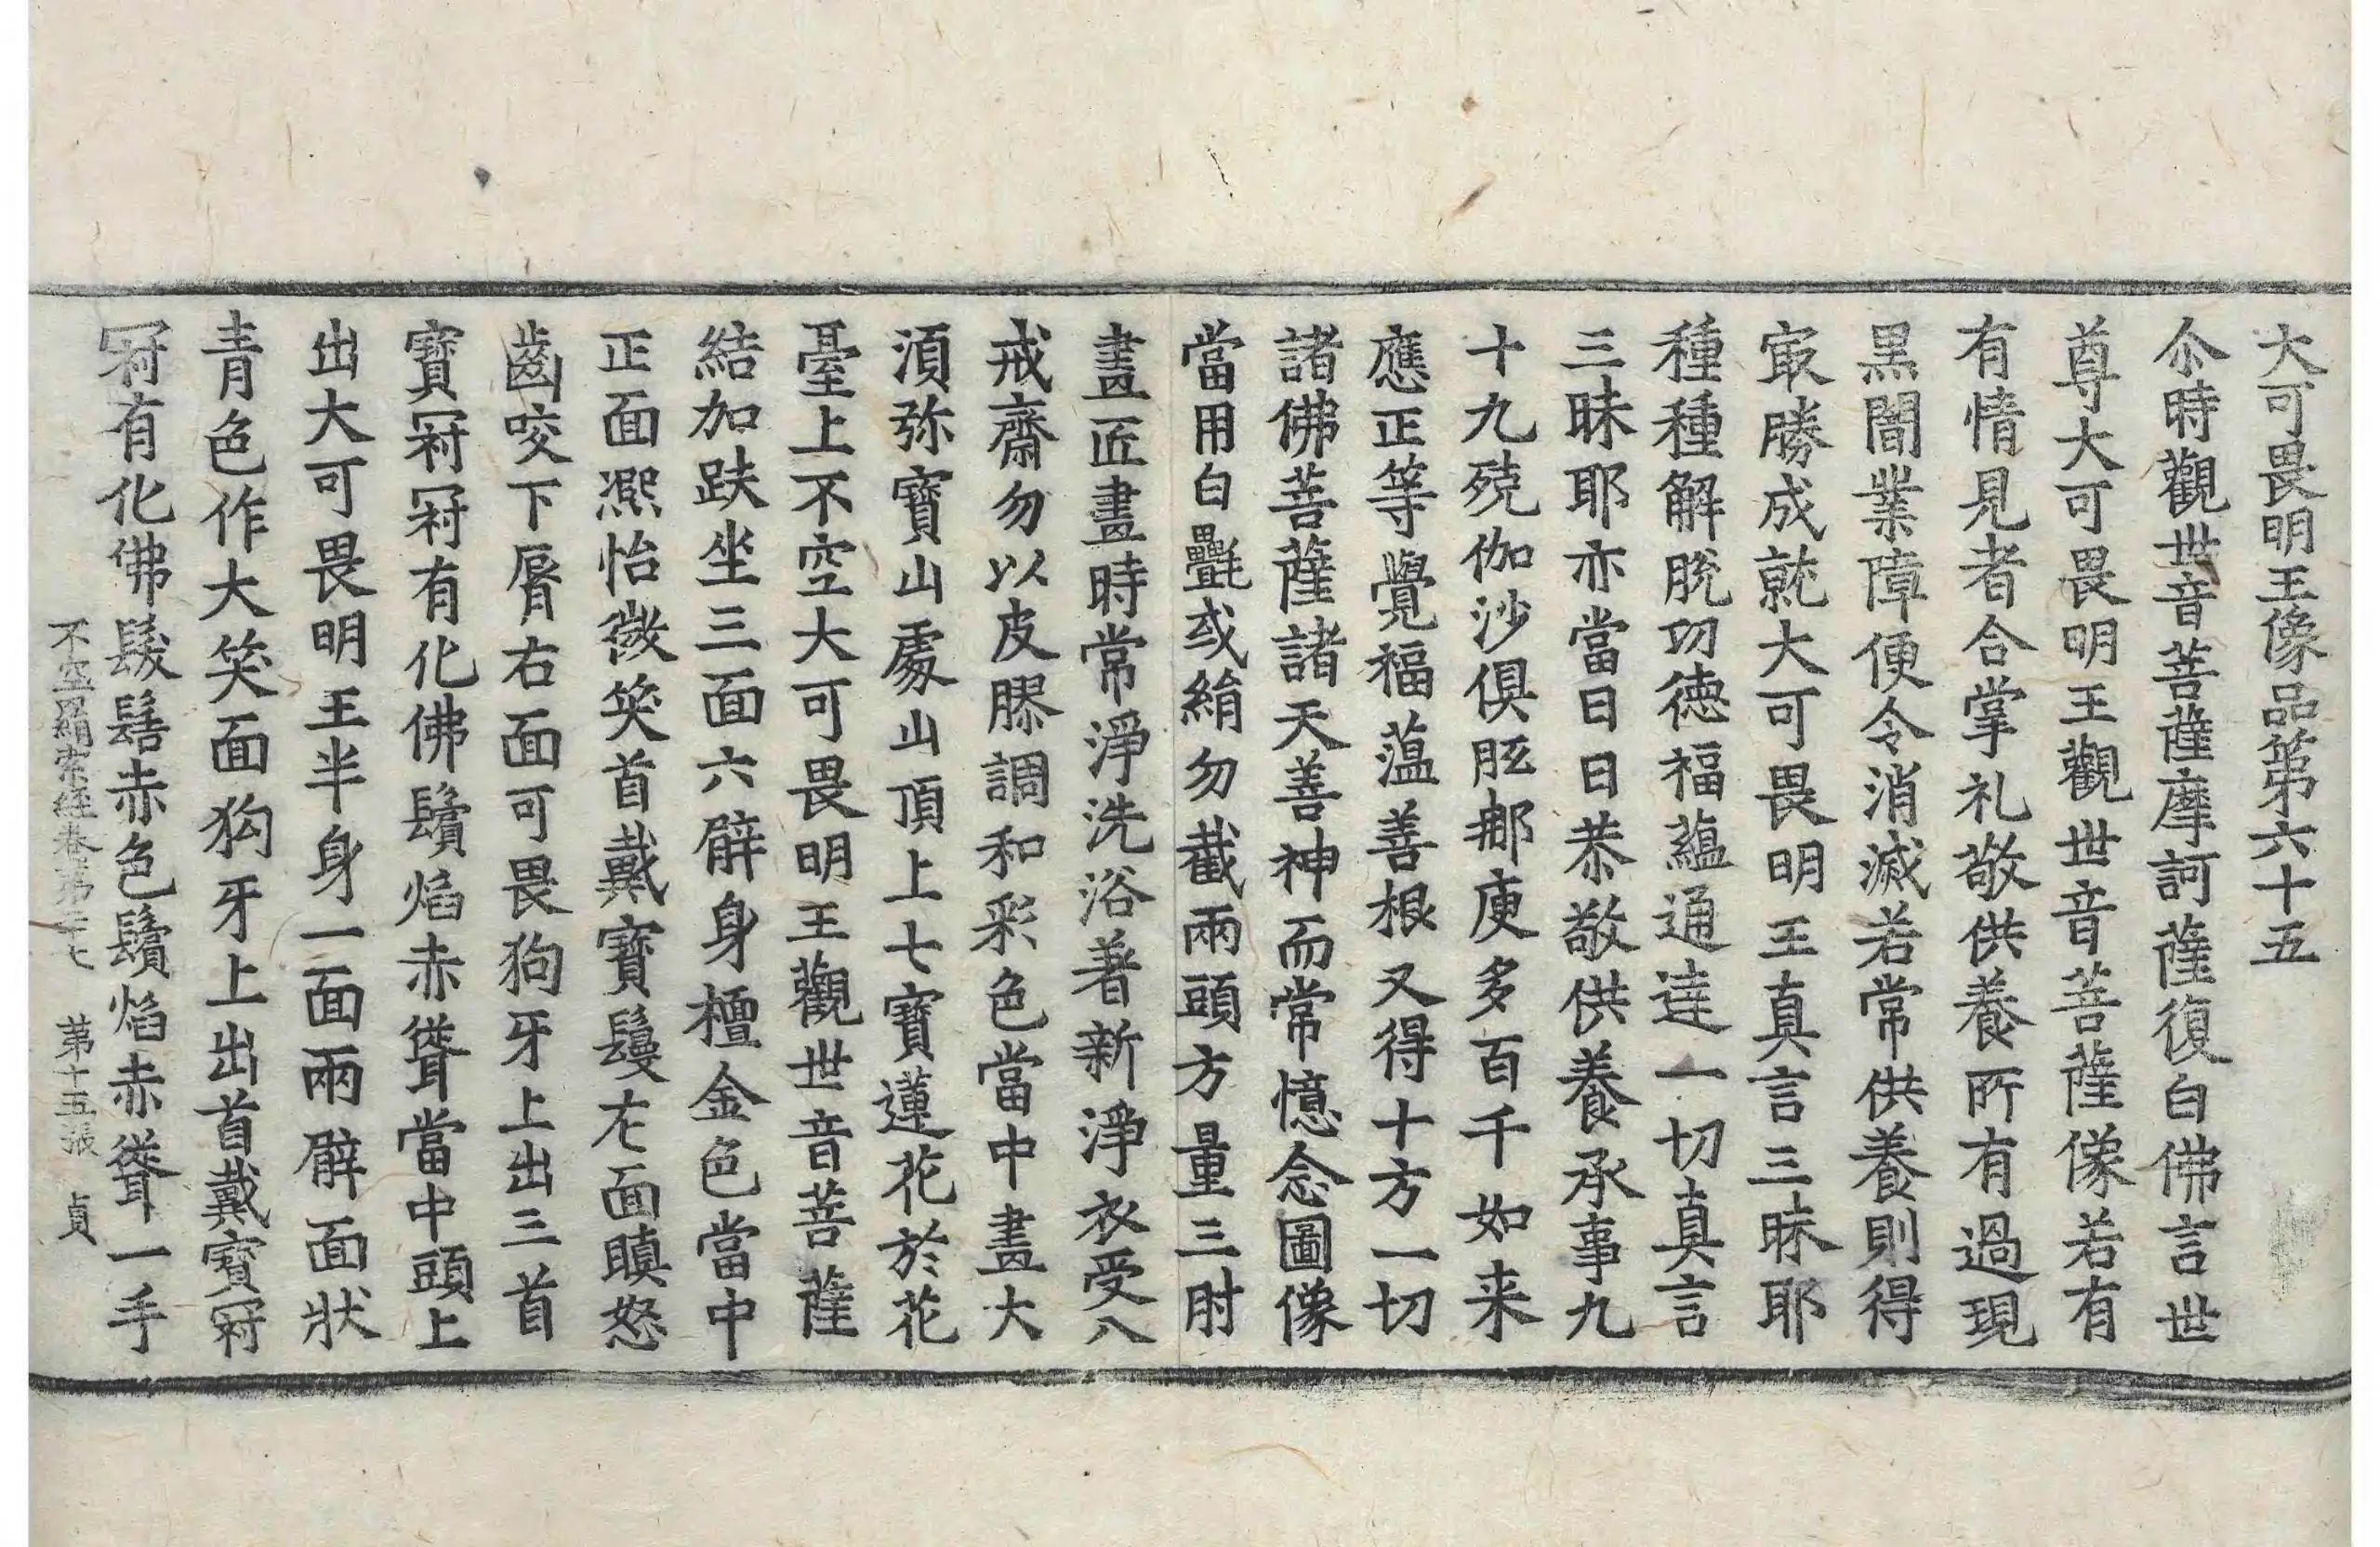 大可畏明王像品第六十五
尒時觀世音菩薩摩訶薩復白佛言世
尊大可畏明王觀世音菩薩像若有
有情見者合掌礼敬供養所有過現
黒闇業障便令消滅若常供養則得
㝡勝成就大可畏明王真言三昧耶
種種解脫功徳福蘊通達一切真言
三昧耶亦當日日恭敬供養承事九
十九殑伽沙俱胝那庾多百千如来
應正等覺福蕰善根又得十方一切
諸佛菩薩諸天善神而常憶念圖像
當用白㲲或絹勿截兩頭方量三肘
畫匠畫時常淨洗浴著新淨衣受八
戒齋勿以皮膠調和彩色當中畫大
湏弥寶山處山頂上七寶蓮花於花
臺上不空大可畏明王觀世音菩薩
結加趺坐三面六臂身檀金色當中
正面熈怡微笑首戴寶鬘左面瞋怒
齒咬下脣右面可畏狗牙上出三首
寶冠冠有化佛鬚焰赤聳當中頭上
出大可畏明王半身一面兩臂面狀
青色作大笑面狗牙上出首戴寶冠
冠有化佛髮髻赤色鬚焰赤聳一手
不空羂索經卷第二十七 第十五張 貞